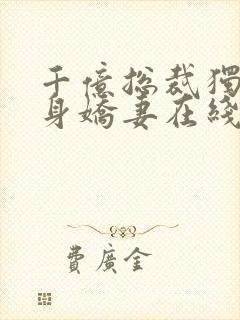 千億總裁獨
身嬌妻在綫
費廣金